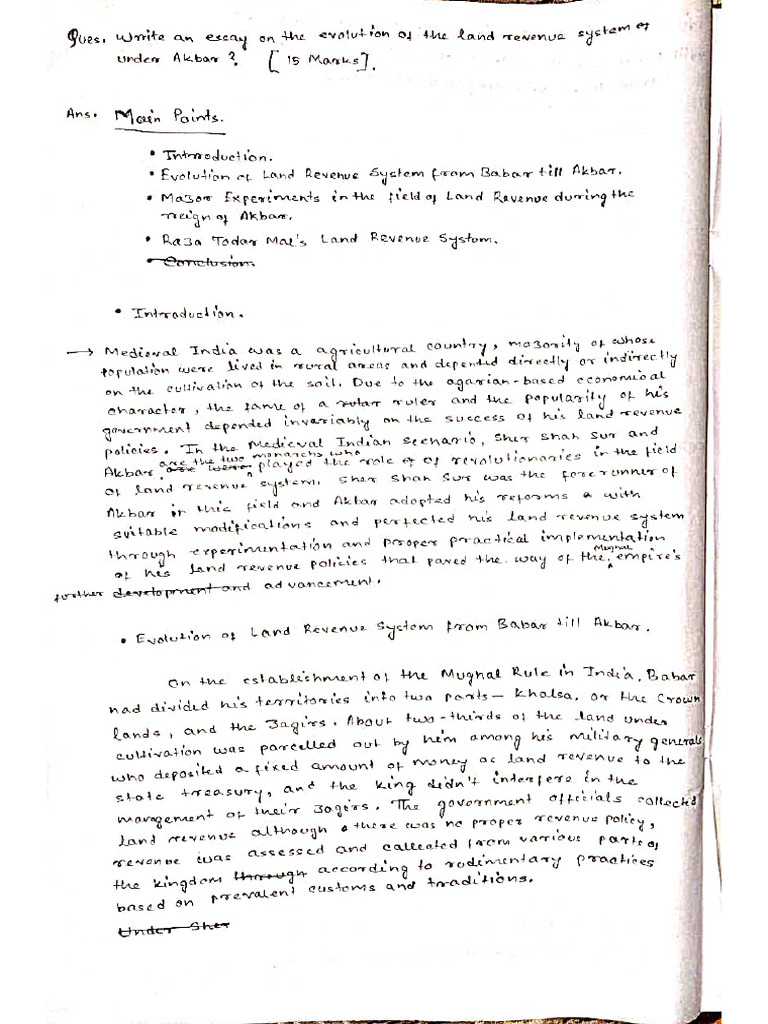 Ques. Write an essay on the evolution of the land revenue system of
under Akbar? [15 Marks].
Ans. Main Points.
• Introduction.
• Evolution of Land Revenue System from Babar till Akbar.
• Major Experiments in the field of Land Revenue during the
reign of Akbar.
• Raja Todar Mal's Land Revenue System.
• Conclusion.
• Introduction.
→ Medieval India was a agricultural country, majority of whose
population were lived in rural areas and depended directly or indirectly
on the cultivation of the soil. Due to the agarian-based economical
character, the fame of a ruler and the popularity of his
government depended invariably on the success of his land revenue
policies. In the Medieval Indian scenario, Sher Shah Sur and
Akbar are the two monarchs who played the role of revolutionaries in the field
of land revenue system. Sher Shah Sur was the forerunner of
Akbar in this field and Akbar adopted his reforms with
suitable modifications and perfected his land revenue system
through experimentation and proper practical implementation
of his land revenue policies that paved the way of the Mughal empire's
further development and advancement.
• Evolution of Land Revenue System from Babar till Akbar.
On the establishment of the Mughal Rule in India, Babar
had divided his territories into two parts – Khalsa, or the Crown
lands, and the Jagirs. About two-thirds of the land under
cultivation was parcelled out by him among his military generals
who deposited a fixed amount of money as land revenue to the
state treasury, and the king didn't interfere in the
management of their Jagirs. The government officials collected
land revenue although there was no proper revenue policy,
revenue was assessed and collected from various parts of
the kingdom through according to rudimentary practices
based on prevalent customs and traditions.
Under Sher